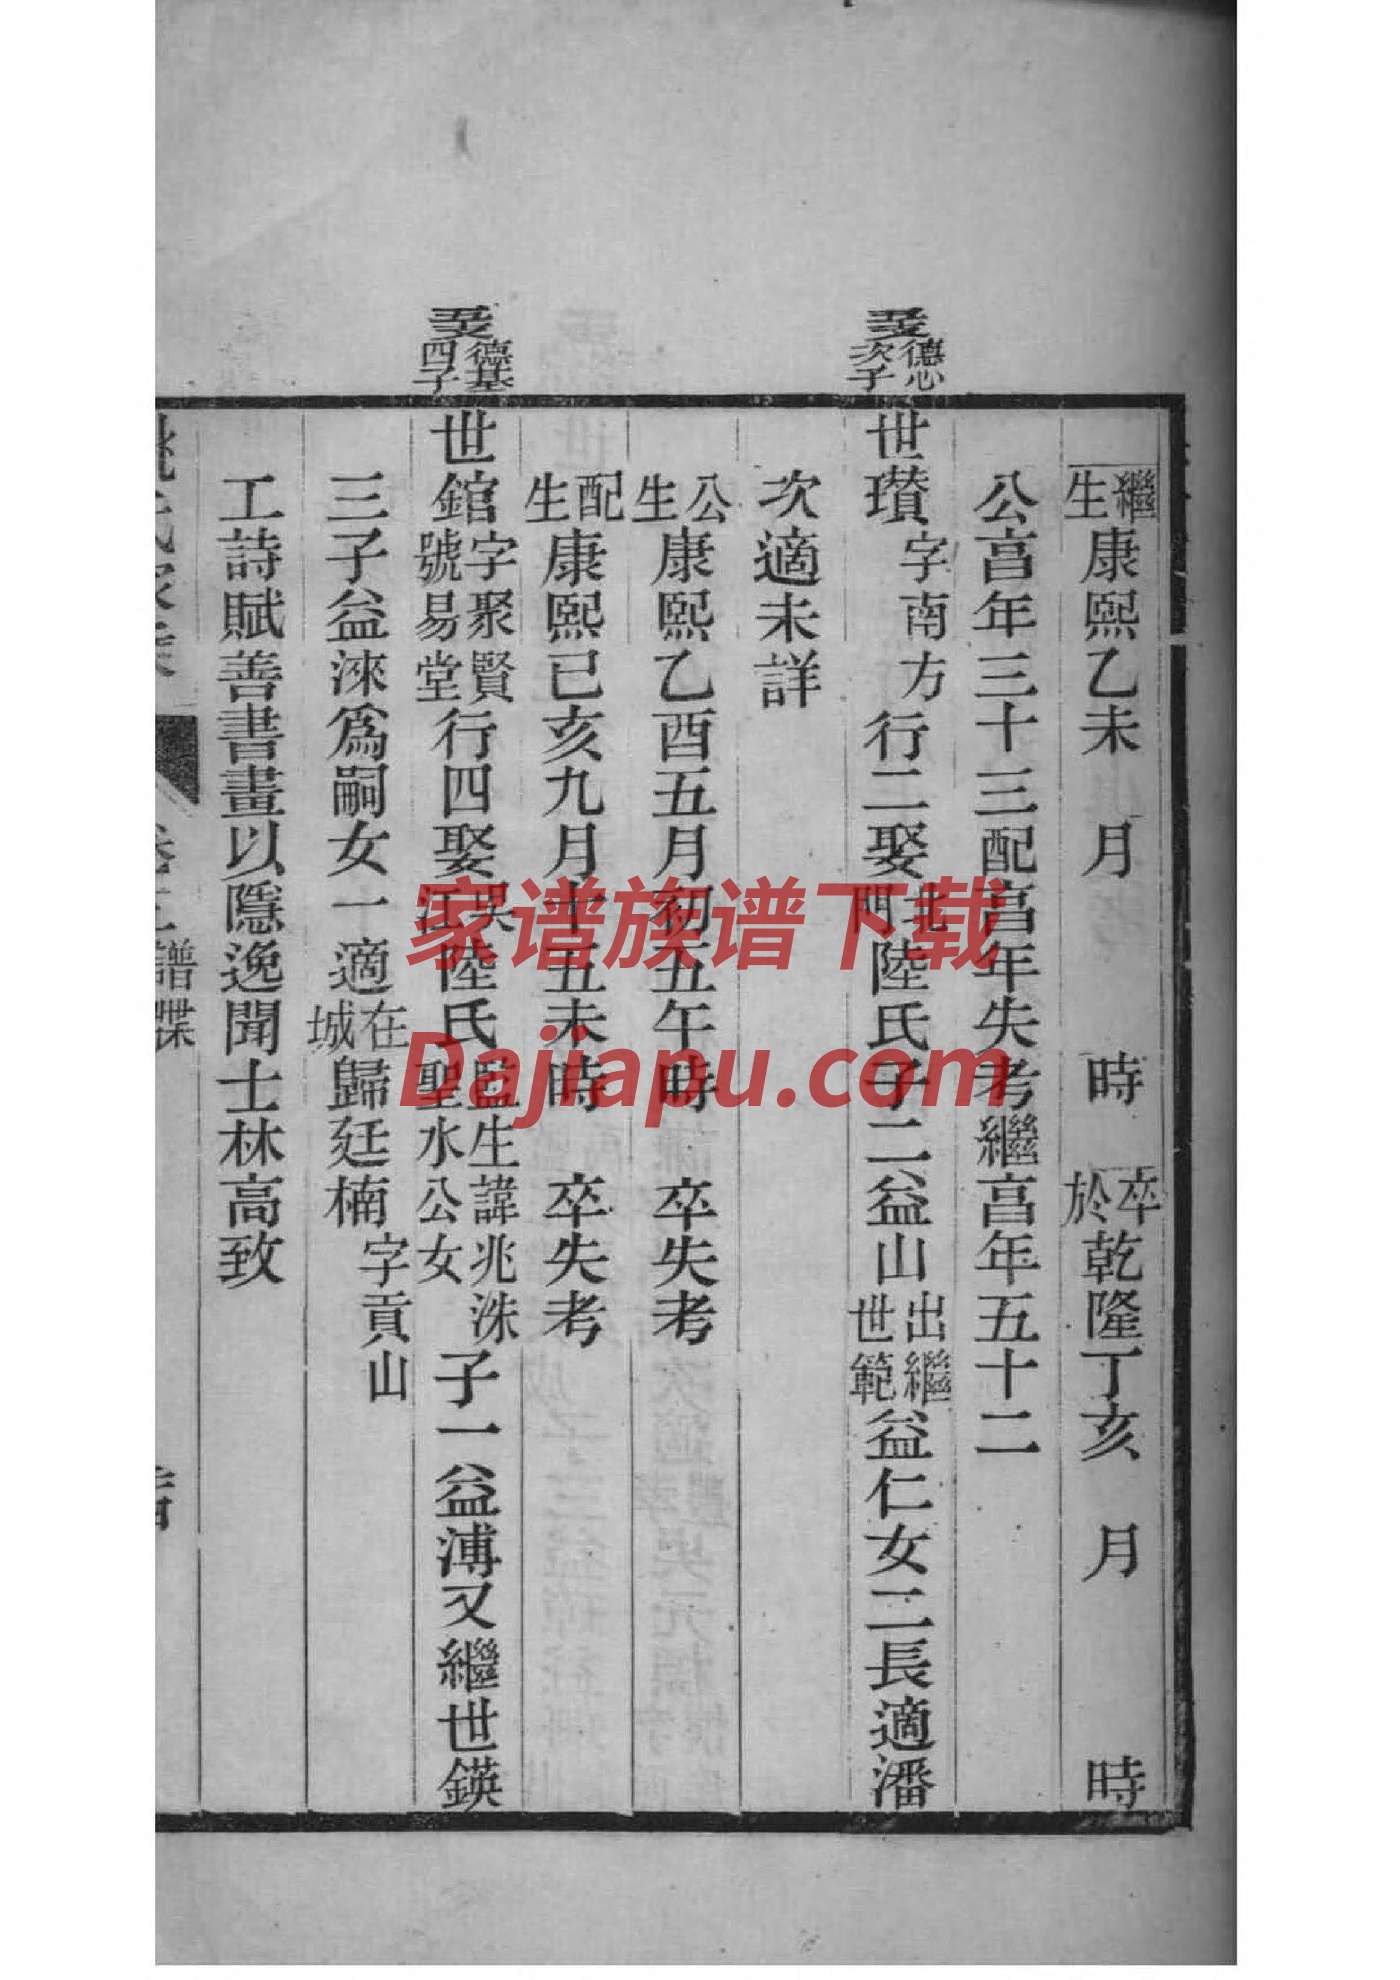 繼生康熙乙未 月 時 卒於乾隆丁亥 月 時
公亯年三十三配亯年失考繼亯年五十二
德心次子
世瓚字南方行二娶北門陸氏子二益山出繼世範益仁女二長適潘
次適未詳
公生康熙乙酉五月初五午時 卒失考
配生康熙己亥九月十五未時 卒失考
德基四子
世錧字聚賢號易堂行四娶吳江陸氏監生諱兆洙聖水公女子一益溥又繼世鍈
三子益淶爲嗣女一適在城歸廷楠字貢山
工詩賦善書畫以隱逸聞士林高致
譜牒
家谱族谱下载
Dajiapu.com